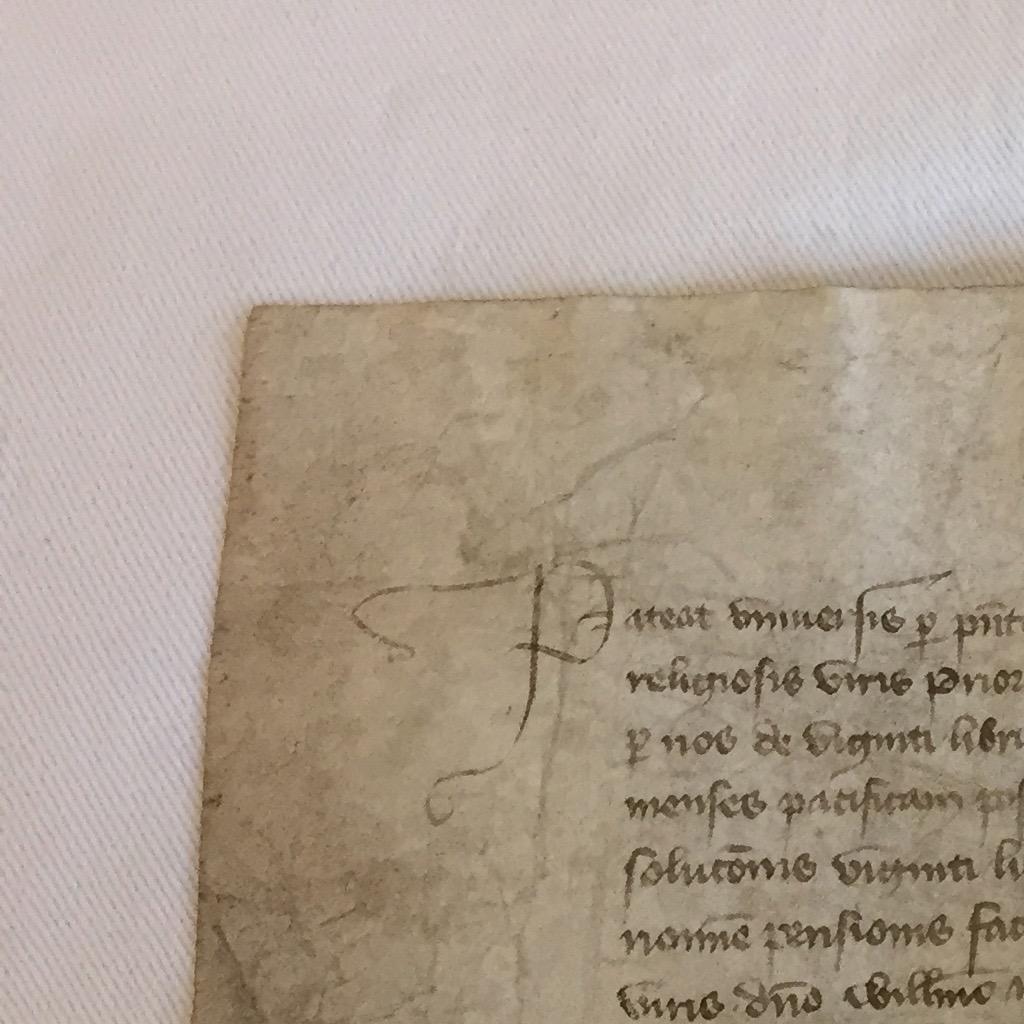 Pateat vniuersis p̱ pn̄t
religiosis viris prior
p̱ nos de viginti libri
menses pacificam pos
soluc̄onis viginti li
nom̄ie pensionis fac
viris dn̄o Will̄mo